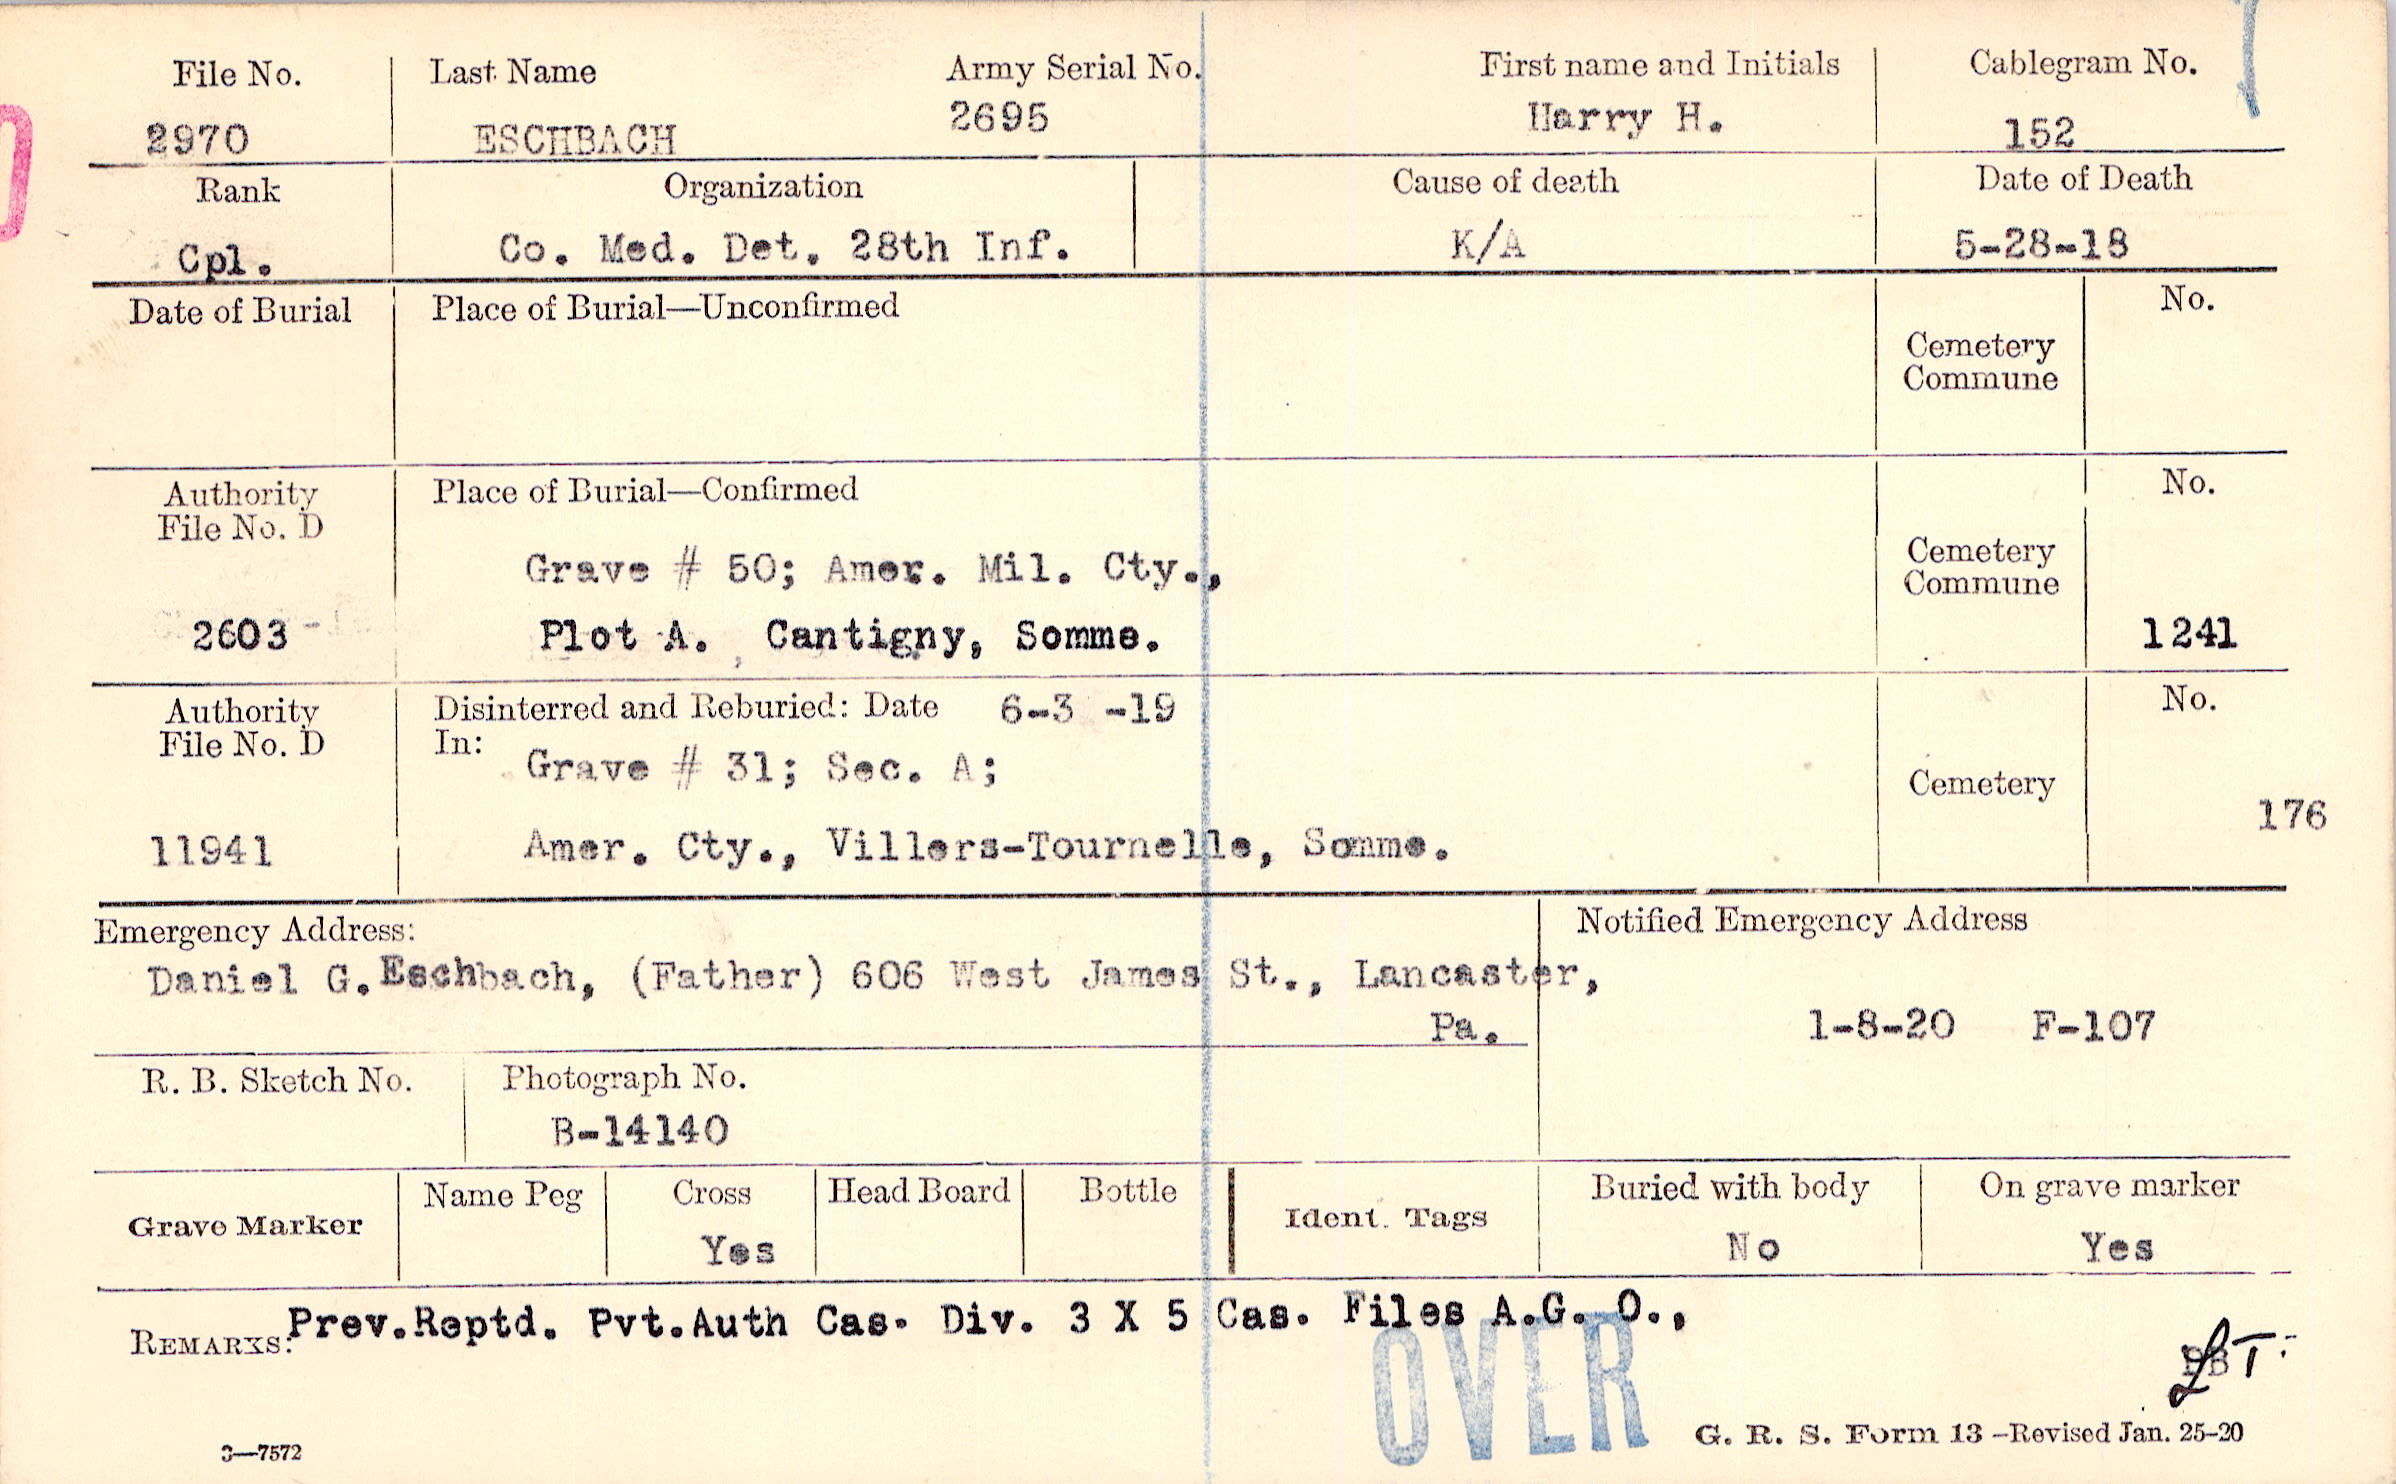 File No. Last Name Army Serial No. First name and Initials Cablegram No.
2970 ESCHBACH 2695 Harry H. 152
Rank Organization Cause of death Date of Death
Cpl. Co. Med. Det. 28th Inf. K/A 5-28-18
Date of Burial Place of Burial—Unconfirmed No.
Cemetery
Commune
Authority Place of Burial—Confirmed No.
File No. D
Grave # 50; Amer. Mil. Cty., Cemetery
Commune
2603 Plot A. Cantigny, Somme. 1241
Authority Disinterred and Reburied: Date 6-3 -19 No.
File No. D In:
Grave # 31; Sec. A;
Cemetery 176
11941 Amer. Cty., Villers-Tournelle, Somme.
Emergency Address: Notified Emergency Address
Daniel G. Eschbach, (Father) 606 West James St., Lancaster,
Pa. 1-8-20 F-107
R. B. Sketch No. Photograph No.
B-14140
Grave Marker Name Peg Cross Head Board Bottle Ident. Tags Buried with body On grave marker
Yes No Yes
REMARKS: Prev.Reptd. Pvt.Auth Cas. Div. 3 X 5 Cas. Files A.G. O.,
OVER
G. R. S. Form 13 —Revised Jan. 25-20
3—7572